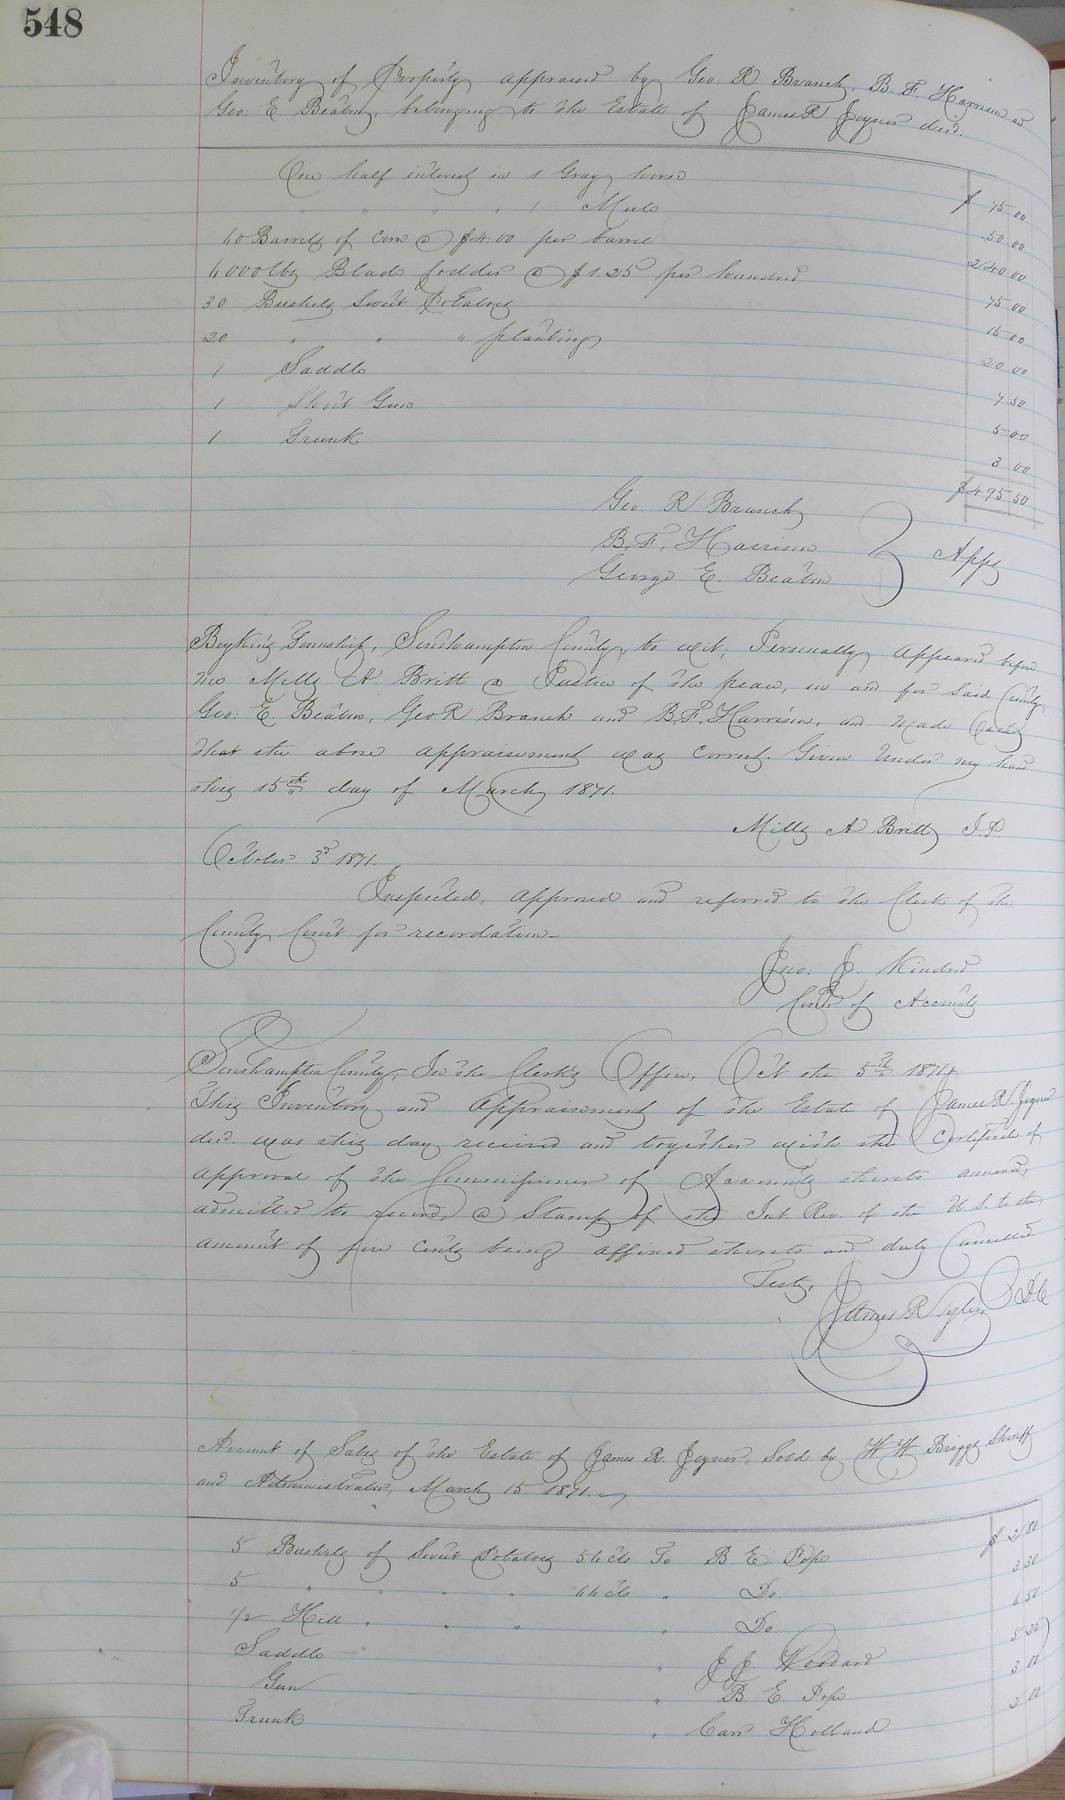 548
Inventory of Property appraised by Geo: R Branch, B. F. Harrison and
Geo: E. Beaton, belonging to the Estate of James R Joyner decd.
One half interest in 1 Gray horse $ 75 00
" " " " 1 Mule 50 00
60 Barrels of Corn @ $4.00 per barrel 240 00
6000 lbs Blade fodder @ $1.25 per hundred 75 00
30 Bushels Sweet Potatoes 15 00
20 " " " planting 20 00
1 Saddle 7 50
1 Shot Gun 5 00
1 Trunk 3 00
$495 50
Geo. R Branch
B. F. Harrison
George E. Beaton
Apps
Boykins Township, Southampton County, to wit; Personally appeared before
me Mills A. Britt a Justice of the peace, in and for said County
Geo: E. Beaton, Geo R Branch and B. F. Harrison, and made Oath
that the above appraisement was correct. Given under my hand
this 15th day of March 1871.
Mills A Britt J.P.
October 3d 1871.
Inspected, approved and referred to the Clerk of the
County Court for recordation
Jno. J. Kindred
Comr of Accounts
Southampton County, In the Clerk's Office, Oct the 5th 1871
This Inventory and Appraisement of the Estate of James R. Joyner
decd. was this day received and together with the Certificate of
approval of the Commissioner of Accounts thereto annexed,
admitted to record, a Stamp of the Int Rev. of the U.S. to the
amount of five cents being affixed thereto and duly Cancelled
Teste,
James R Tyler D.C
Account of Sales of the Estate of James R. Joyner, Sold by W W Briggs Sheriff
and Administrator, March 15. 1871.
5 Bushels of Sweet Potatoes 56 cts To B. E. Pope $ 2 80
5 " " " " 66 cts " Do. 3 30
1/2 Hill " " " " Do 6 50
Saddle " J J Woodard 5 25
Gun " B. E. Pope 3 00
Trunk " Carr Holland 2 00